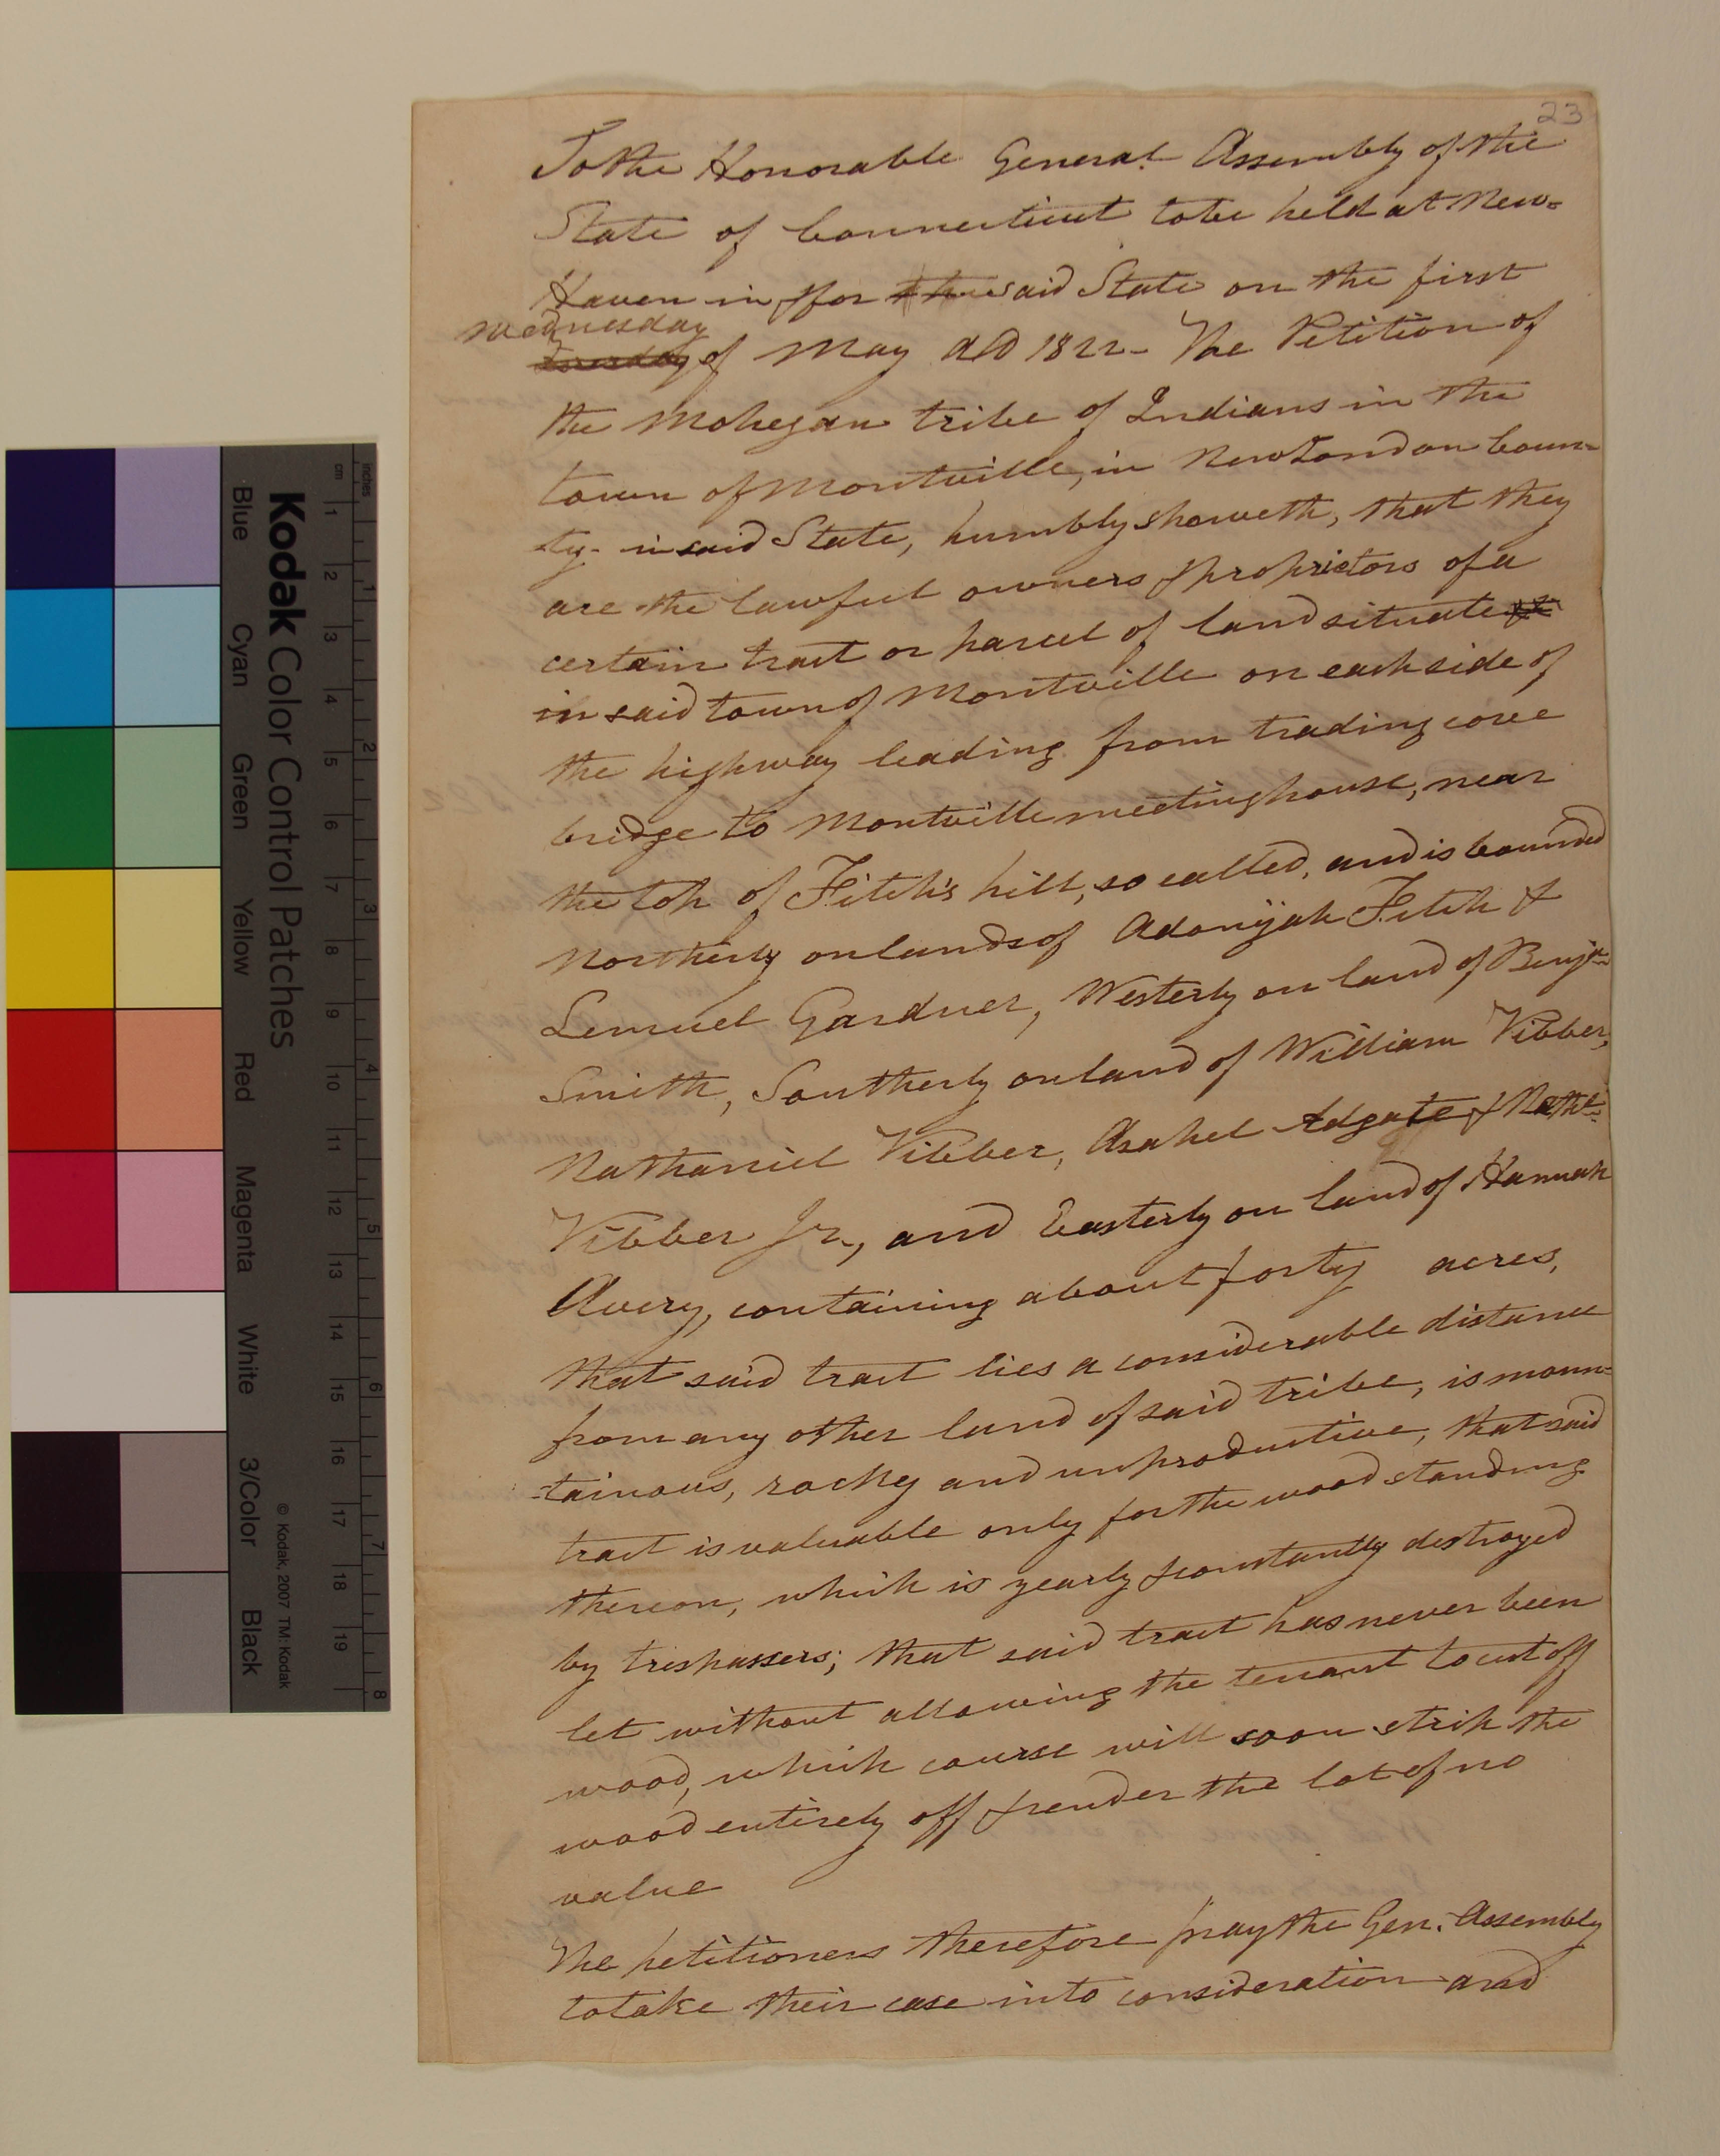 23
To the Honorable General Assembly of the
State of Connecticut to be held at New-
Haven in & for the said State on the first
Wednesday
Tuesday of May AD 1822- The Petition of
the Mohegan tribe of Indians in the
town of Montville, in New London Coun-
ty- in said State, humbly sheweth, that they
are the lawful owners & proprietors of a
certain tract or parcel of land situate
in said town of Montville on each side of
the highway leading from trading cove
bridge to Montville meeting house, near
the top of Fitch's hill, so called, and is bounded
Northerly on lands of Adonijah Fitch &
Lemuel Gardner, Westerly on land of Benja-
Smith, Southerly on land of William Vibber,
Nathaniel Vibber, Asahel Adgate & Nathl.
Vibber Jr., and Easterly on land of Hannah
Avery, containing about forty acres,
that said tract lies a considerable distance
from any other land of said tribe, is moun-
-tainous, rocky and unproductive, that said
tract is valuable only for the wood standing
thereon, which is yearly & constantly destroyed
by trespassers; that said tract has never been
let without allowing the tenant to cut off
wood, which course will soon strip the
wood entirely off & render the lot of no
value
The petitioners therefore pray the Gen. Assembly
to take their case into consideration and
Kodak Color Control Patches
Blue Cyan Green Yellow Red Magenta White 3/Color Black
© Kodak, 2007 TM: Kodak
cm 1 2 3 4 5 6 7 8 9 10 11 12 13 14 15 16 17 18 19
inches 1 2 3 4 5 6 7 8